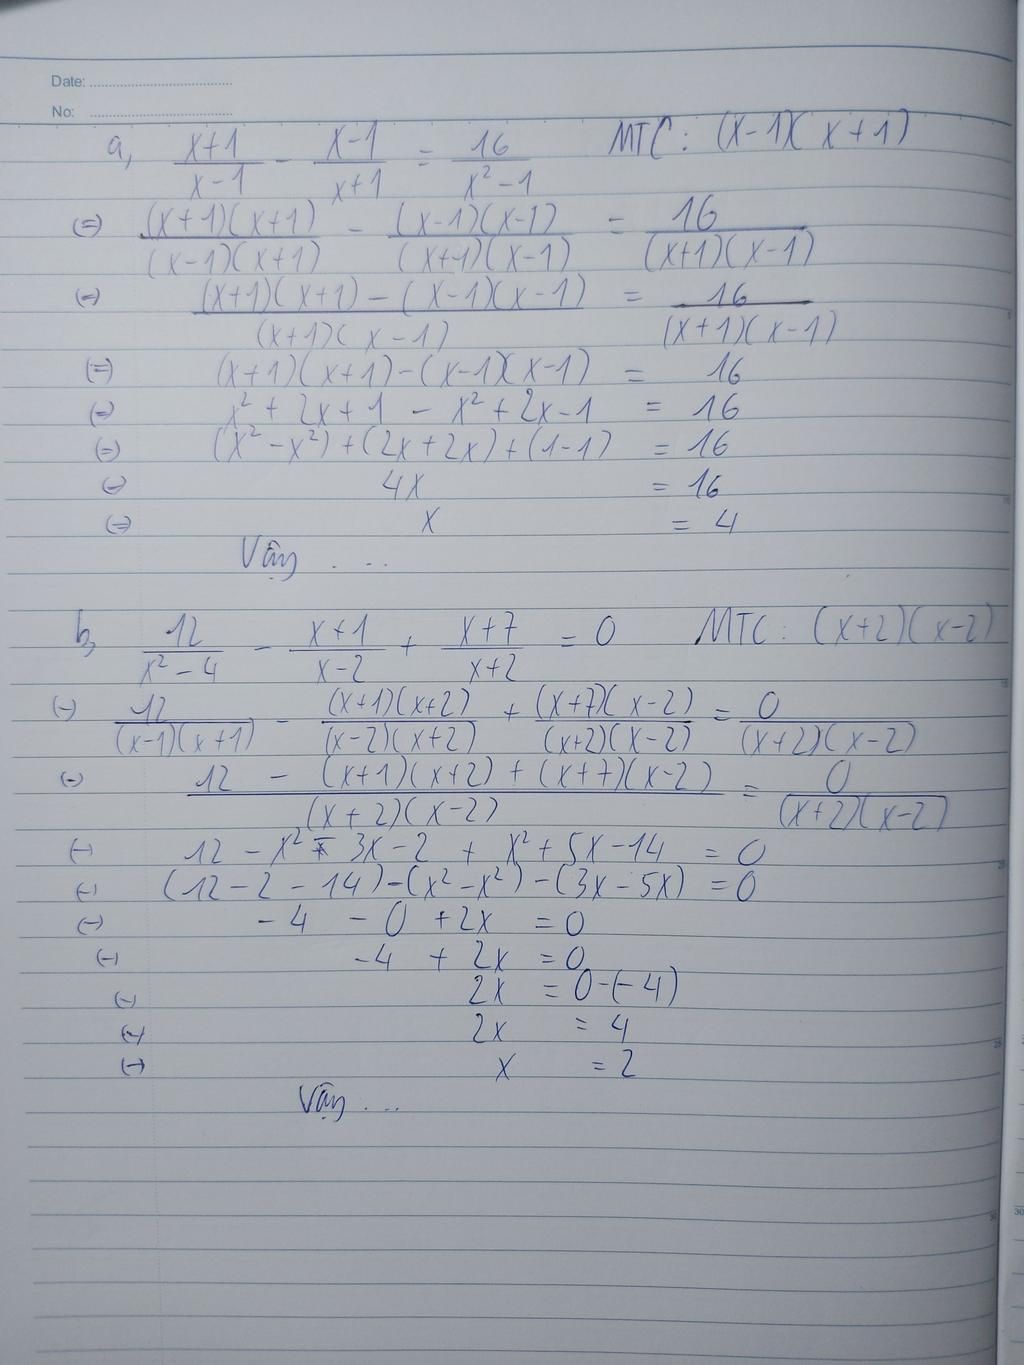 Date: ....................................
No: ....................................
a, x+1/x-1 - x-1/x+1 = 16/x²-1 MTC: (x-1)(x+1)
(=) (x+1)(x+1)/(x-1)(x+1) - (x-1)(x-1)/(x+1)(x-1) = 16/(x+1)(x-1)
(=) (x+1)(x+1)-(x-1)(x-1)/(x+1)(x-1) = 16/(x+1)(x-1)
(=) (x+1)(x+1)-(x-1)(x-1) = 16
(=) x² + 2x + 1 - x² + 2x - 1 = 16
(=) (x² - x²) + (2x + 2x) + (1-1) = 16
(=) 4x = 16
(=) x = 4
Vậy ....
b, 12/x²-4 - x+1/x-2 + x+7/x+2 = 0 MTC: (x+2)(x-2)
(-) 12/(x-1)(x+1) - (x+1)(x+2)/(x-2)(x+2) + (x+7)(x-2)/(x+2)(x-2) = 0/(x+2)(x-2)
(-) 12 - (x+1)(x+2) + (x+7)(x-2)/(x+2)(x-2) = 0/(x+2)(x-2)
(-) 12 - x² - 3x - 2 + x² + 5x - 14 = 0
(-) (12 - 2 - 14) - (x² - x²) - (3x - 5x) = 0
(-) -4 - 0 + 2x = 0
(-) -4 + 2x = 0
(-) 2x = 0-(-4)
(-) 2x = 4
(-) x = 2
Vậy ....